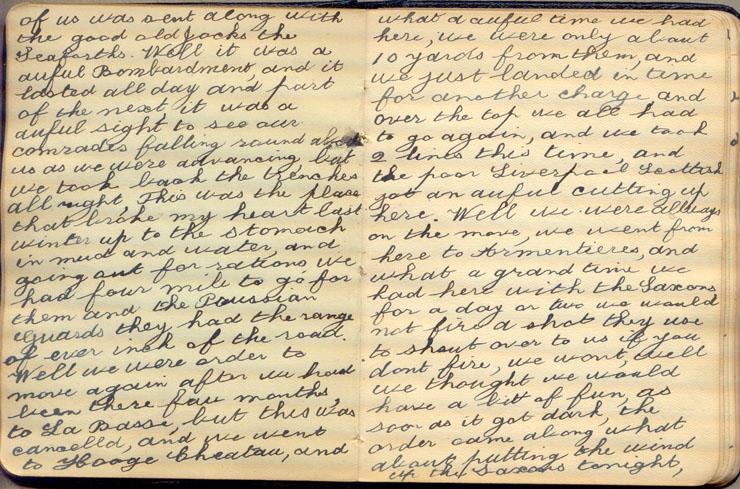 of us was sent along with
the good old Jocks the
Seaforths. Well it was a
auful Bombardment, and it
lasted all day and part
of the next it was a
auful sight to see our
comrades falling round about
us as we were advancing but
we took back the trenches
all right, This was the place
that broke my heart last
winter up to the stomach
in mud and water, and
going out for rations we
had four mile to go for
them and the Prussian
Guards they had the range
of ever inch of the road.
Well we were order to
move again after we had
been there few months,
to La Basse, but this was
cancelld, and we went
to Hooge Cheatau, and
what a auful time we had
here, we were only about
10 yards from them, and
we just landed in time
for another charge and
over the top we all had
to go again, and we took
2 lines this time, and
the poor Liverpool Scottish
got an auful cutting up
here. Well we were allways
on the move, we went from
here to Armentieres, and
what a grand time we
had here with the Saxons
for a day or two we would
not fire a shot they use
to shout over to us if you
dont fire, we wont, well
we thought we would
have a bit of fun, as
soon as it got dark, the
order came along, what
about putting the wind
up the Saxons tonight,